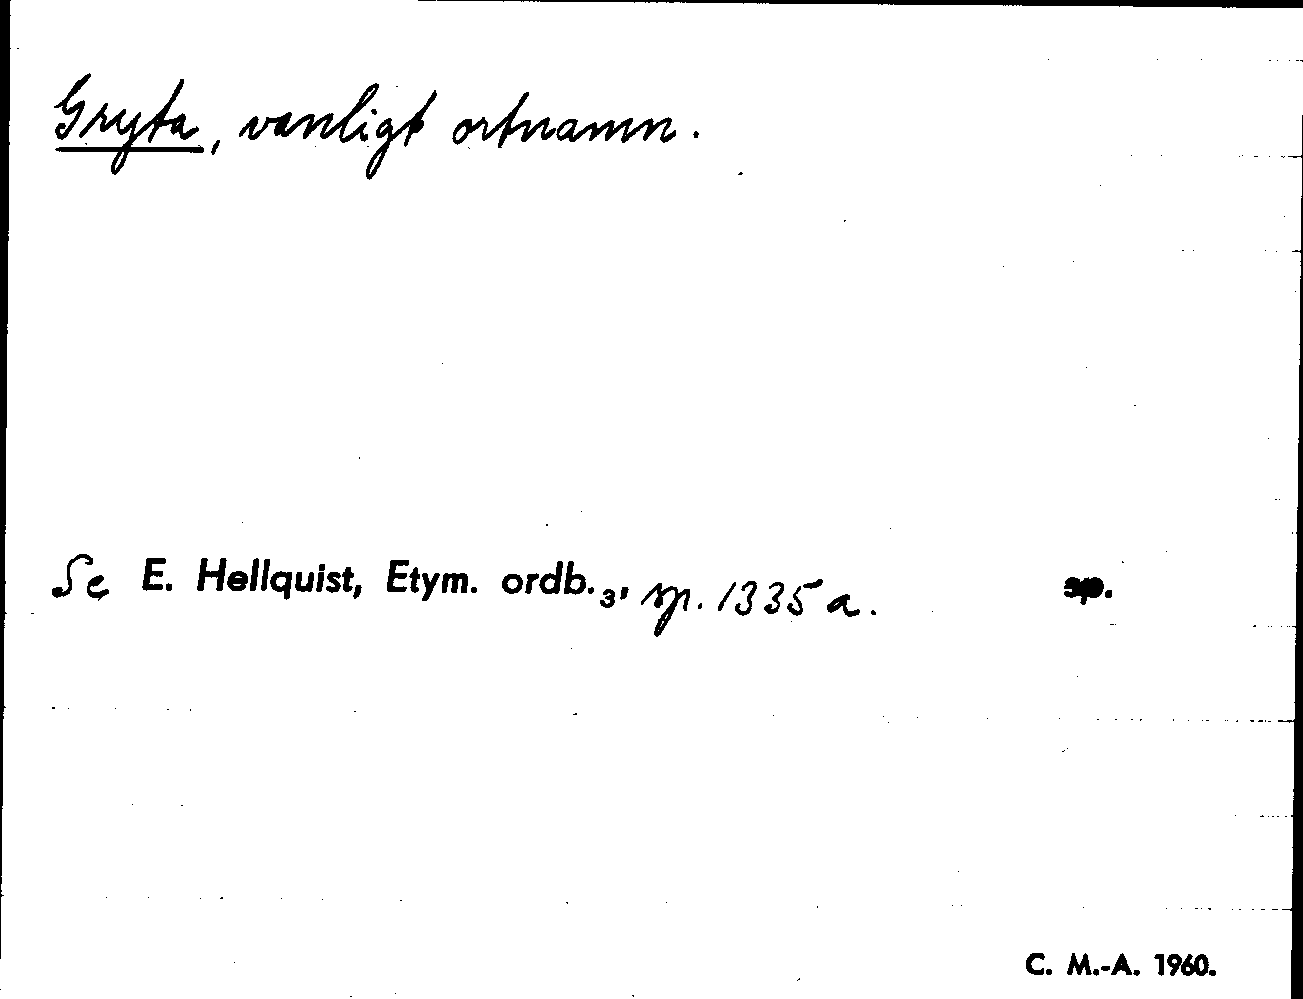 Gryta, vanligt ortnamn.
Se E. Hellquist, Etym. ordb.₃, sp. 1335 a. sp.
C. M.-A. 1960.